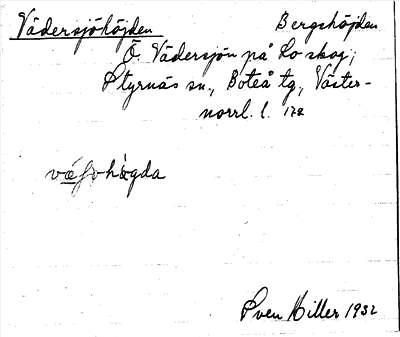 Vädersjöhöjden Bergshöjden
Ö. Vädersjön på Lo skog;
Styrnäs sn., Boteå tg, Väster-
norrl. l. 172
Sven Hiller 1932